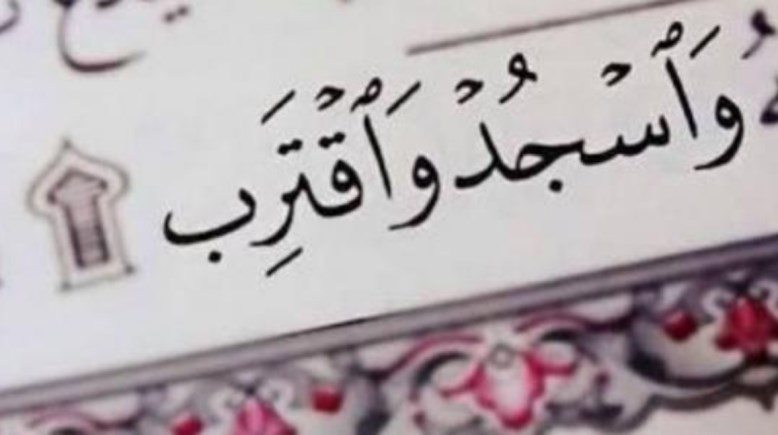 وَٱسۡجُدۡ وَٱقۡتَرِب ۩